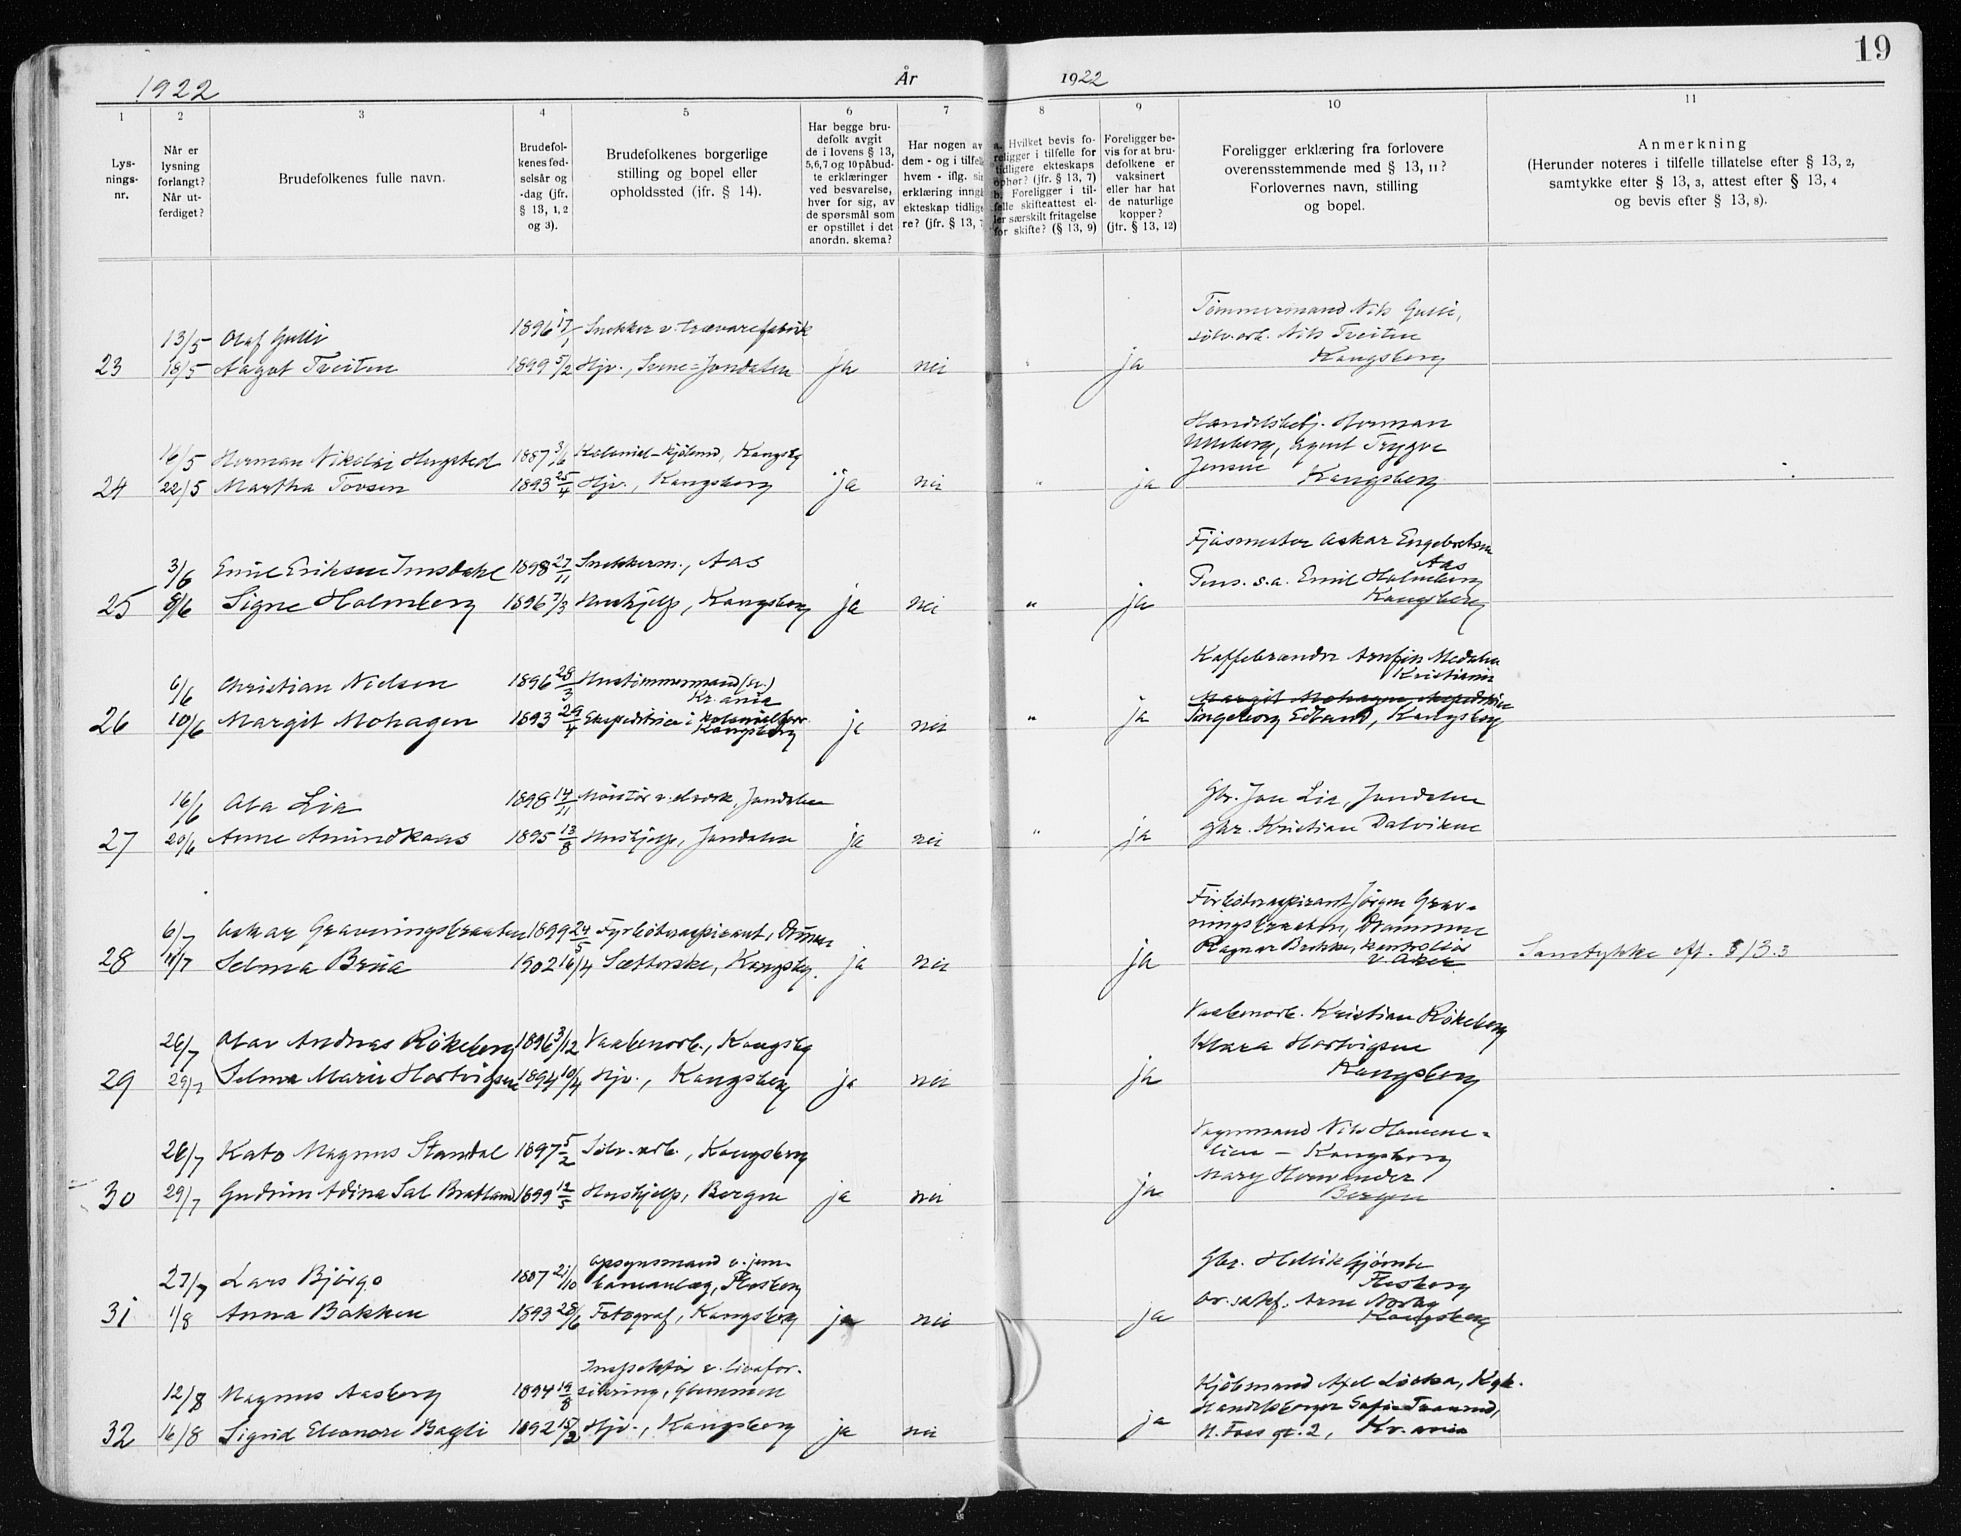 19
1922 År 1922
1 2 3 4 5 6 7 8 9 10 11
Lys-
nings-
nr.
Når er
lysning
forlangt?
Når ut-
ferdiget?
Brudefolkenes fulle navn.
Brudefol-
kenes fød-
selsår og
-dag (jfr.
§ 13, 1, 2
og 3).
Brudefolkenes borgerlige
stilling og bopel eller
opholdssted (jfr. § 14).
Har begge bru-
defolk avgit
de i lovens § 13,
5,6,7 og 10 påbud-
te erklæringer
ved besvarelse,
hver for sig, av
de spørsmål som
er opstillet i det
anordn. skema?
Har nogen av
dem - og i tilfelle
hvem - iflg. si
erklæring inngå
ekteskap tidlige
re? (jfr. § 13, 7
a. Hvilket bevis fo-
religger i tilfelle for
tidligere ekteskaps
ophør? (jfr. § 13, 7)
b. Foreligger i til-
felle skifteattest el-
ler særskilt fritagelse
for skifte? (§ 13, 9)
Foreligger be-
vis for at bru-
defolkene er
vaksinert
eller har hat
de naturlige
kopper?
(jfr. § 13, 12)
Foreligger erklæring fra forlovere
overensstemmende med § 13, 11?
Forlovernes navn, stilling
og bopel.
Anmerkning
(Herunder noteres i tilfelle tillatelse efter § 13, 2,
samtykke efter § 13, 3, attest efter § 13, 4
og bevis efter § 13, 8).
Tømmermand Nils Gulli,
13/5 Olaf Gulli 1896 17/1 Snekker v. trævarefabrik
sølv.arb. Nils Tveiten
Kongsberg
23 18/5 Aagot Tveiten 1899 5/2 Hjv., Svene=Jondalen ja nei " ja
Handelsbetj. Herman
Ulleberg, agent Trygve
16/5 Herman Nikolai Hengsted 1887 3/6 Kolonial-kjøbmd, Kongsbg
Jensen Kongsberg
24 22/5 Martha Tovsen 1893 25/4 Hjv., Kongsberg ja nei " ja
Fjøsmester Oskar Engebretsen
Aas
3/6 Emil Eriksen Imsdahl 1898 27/11 Snekkerm., Aas
Pens. s.a. Emil Holmberg
Kongsberg
25 8/6 Signe Holmberg 1896 7/3 Hushjelp, Kongsberg ja nei " ja
Kaffebrænder Arnfin Medalen
Kristiania
6/6 Christian Nielsen 1896 28/3 Hustømmermand (sv.)
Kr.ania
Margit Mohagen ekspeditrice
26 10/6 Margit Mohagen 1893 29/4 Ekspeditrice i kolonialforr.
Kongsberg ja nei " ja Ingeborg Edland, Kongsberg
16/6 Ola Lia 1898 14/11 Montør v. elverk, Jondalen
Gbr. Jon Lia, Jondalen
27 20/6 Anne Amundkaas 1895 13/8 Hushjelp, Jondalen ja nei " ja gbr. Kristian Dalviken
Fyrbøteraspirant Jørgen Grav-
ningsbraaten, Drammen
6/7 Oskar Gravningsbraaten 1899 24/5 Fyrbøteraspirant, Drmen
Ragnar Brekke, kontrollør
28 11/7 Selma Brua 1902 16/4 Sætterske, Kongsbg. ja nei ja Samtykke eft. § 13.3
Vaabenarb. Kristian Røkeberg
26/7 Olav Andreas Røkeberg 1896 3/12 Vaabenarb., Kongsbg
Klara Hartvigsen
Kongsberg
29 29/7 Selma Marie Hartvigsen 1894 10/4 Hjv., Kongsberg ja nei ja
Vognmand Nils Hamme-
lien - Kongsberg
26/7 Kato Magnus Standal 1897 5/2 Sølv.arb., Kongsberg
Mary Hornander
Bergen
30 29/7 Gudrun Adine Sal Bratland 1899 12/5 Hushjelp, Bergen ja nei ja
Gbr. Hellik Gjømle
Flesberg
27/7 Lars Bjørgo 1887 21/10 opsynsmand v. jern-
baneanlæg, Flesberg
Kongsberg
31 1/8 Anna Bakken 1893 28/6 Fotograf, Kongsberg ja nei ja
12/8 Magnus Aasberg 1894 19/8 Inspektør v. livsfor-
sikring, Glemmen
Kjøbmand Axel Løcka, Kgb.
32 16/8 Sigrid Eleonore Bagli 1892 15/2 Hjv., Kongsberg ja nei ja
N. Foss gt. 2, Kr.ania